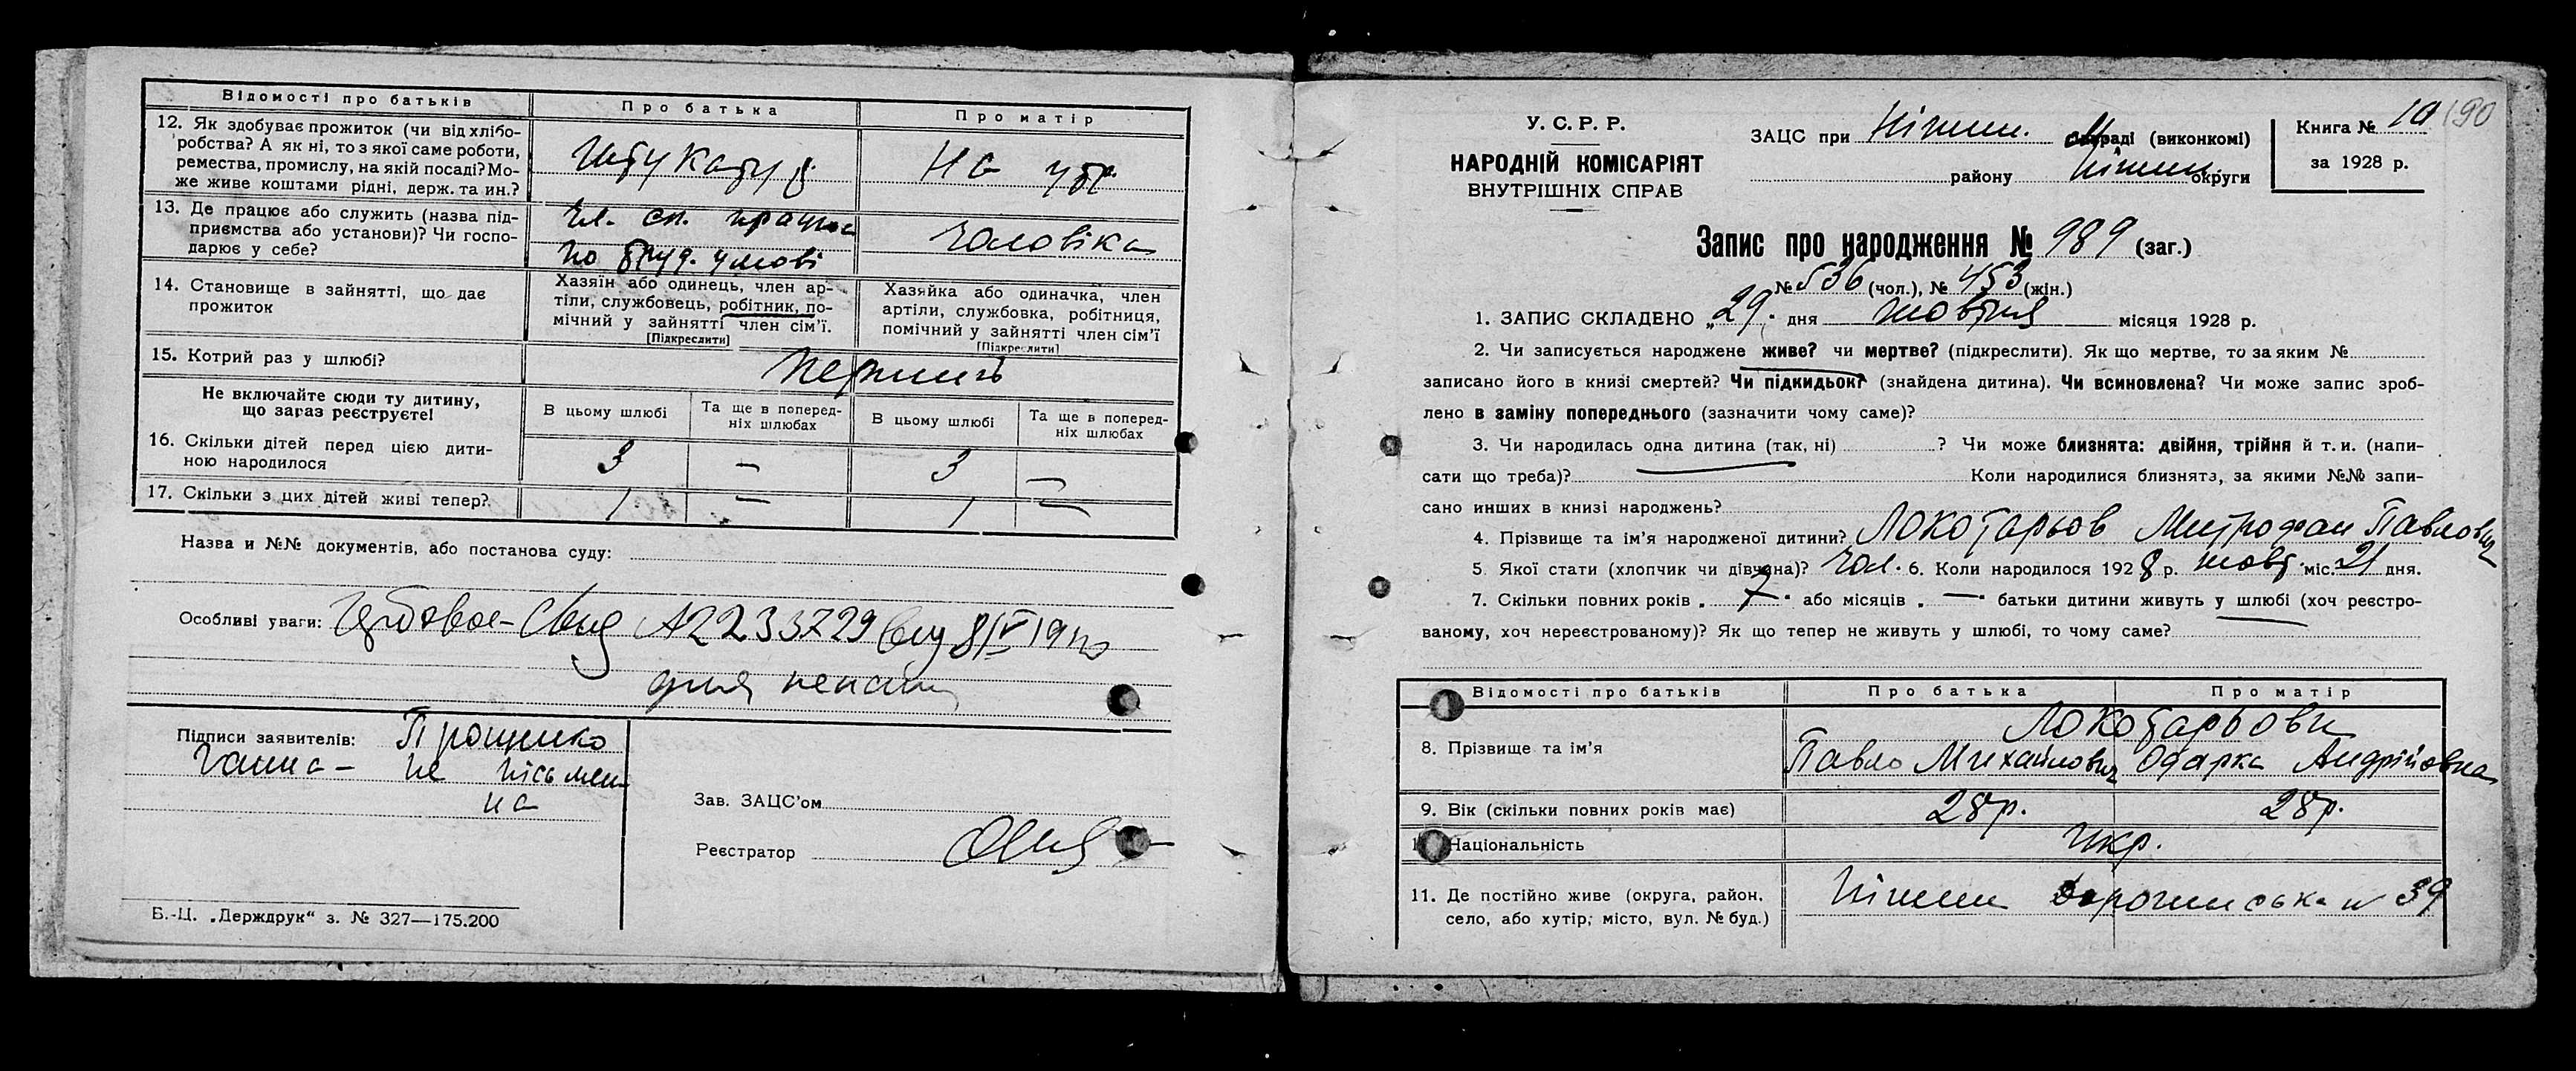 Відомості про батьків Про батька Про матір
12. Як здобуває прожиток (чи від хлібо-
робства? А як ні, то з якої саме роботи,
ремества, промислу, на якій посаді? Мо-
же живе коштами рідні, держ. та ин.?
Штукатур На утр.
13. Де працює або служить (назва під-
приємства або установи)? Чи госпо-
дарює у себе?
Чл. сп. працює
по труд. умові
чоловіка
14. Становище в зайнятті, що дає
прожиток
Хазяїн або одинець, член ар-
тіли, службовець, робітник, по-
мічний у зайнятті член сім'ї.
[Підкреслити]
Хазяйка або одиначка, член
артіли, службовка, робітниця,
помічний у зайнятті член сім'ї
[Підкреслити]
15. Котрий раз у шлюбі? перший
Не включайте сюди ту дитину,
що зараз реєструєте!
В цьому шлюбі Та ще в поперед-
ніх шлюбах В цьому шлюбі Та ще в поперед-
ніх шлюбах
16. Скільки дітей перед цією дити-
ною народилося 3 — 3 —
17. Скільки з цих дітей живі тепер? 1 — 1 —
Назва и №№ документів, або постанова суду:
Особливі уваги: А2233729
для
Підписи заявителів: Прощенко
Ганна – не пісьмен
на
Зав. ЗАЦС'ом
Реєстратор
Б.-Ц. „Держдрук“ з. № 327—175.200
190
У. С. Р. Р.
НАРОДНІЙ КОМІСАРІЯТ
ВНУТРІШНІХ СПРАВ
ЗАЦС при Ніжин. раді (виконкомі)
району Ніжин. округи
Книга № 10
за 1928 р.
Запис про народження № 989 (заг.)
№ 536 (чол.), № 453 (жін.)
1. ЗАПИС СКЛАДЕНО „29. дня жовтня місяця 1928 р.
2. Чи записується народжене живе? чи мертве? (підкреслити). Як що мертве, то за яким №
записано його в книзі смертей? Чи підкидьок? (знайдена дитина). Чи всиновлена? Чи може запис зроб-
лено в заміну попереднього (зазначити чому саме)?
3. Чи народилась одна дитина (так, ні) ? Чи може близнята: двійня, трійня й т. и. (напи-
сати що треба)? Коли народилися близнята, за якими №№ запи-
сано инших в книзі народжень?
4. Прізвище та ім'я народженої дитини? Локотарьов Митрофан Павлович
5. Якої стати (хлопчик чи дівчина)? Чол. 6. Коли народилося 1928 р. жовт. міс. 21 дня.
7. Скільки повних років „ 7 “ або місяців „ — “ батьки дитини живуть у шлюбі (хоч реєстро-
ваному, хоч нереєстрованому)? Як що тепер не живуть у шлюбі, то чому саме?
Відомості про батьків Про батька Про матір
8. Прізвище та ім'я Локотарьови
Павло Михайлович Одарка Андрійовна
9. Вік (скільки повних років має) 28 р. 28 р.
Національність укр.
11. Де постійно живе (округа, район,
село, або хутір, місто, вул. № буд.)
Ніжин № 39